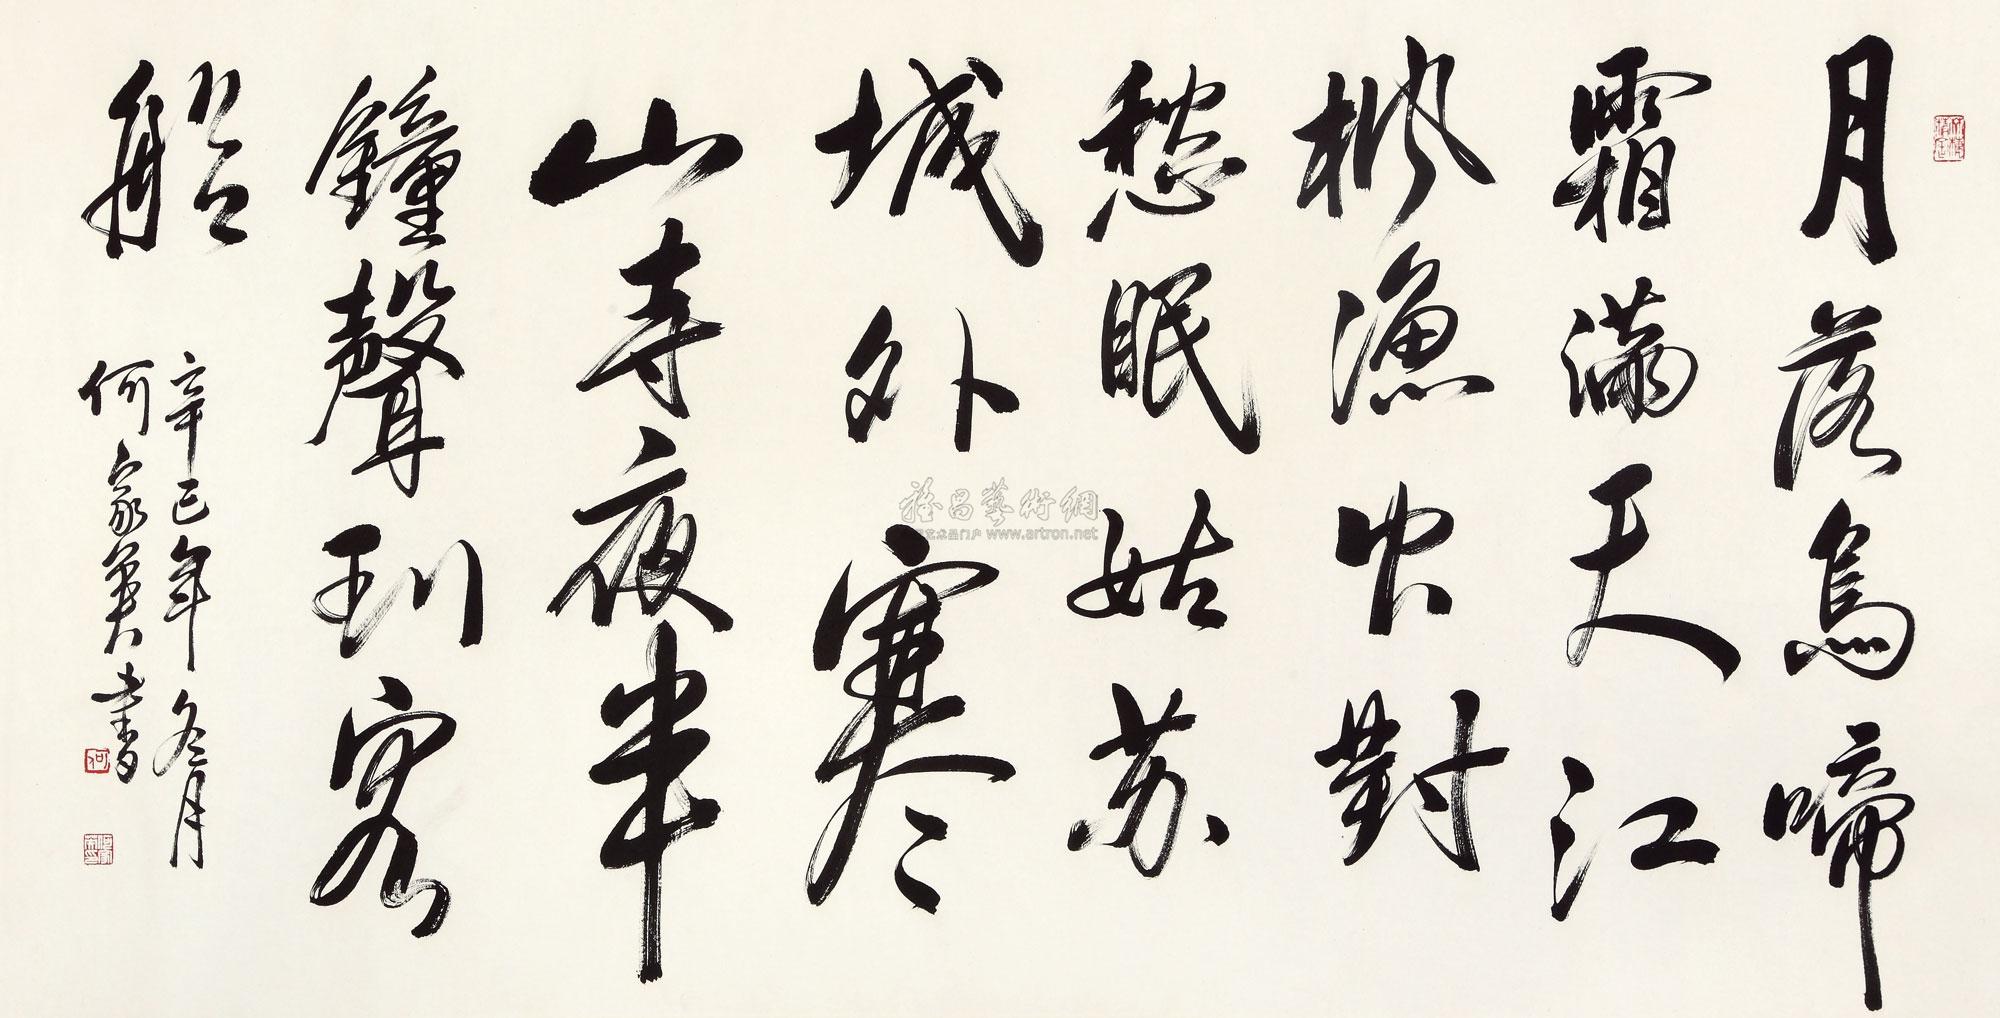 月落烏啼
霜滿天江
楓漁火對
愁眠姑苏
城外寒
山寺夜半
鐘聲到客
船
辛巳年冬月
何家英書
雅昌藝術網
艺术品门户 www.artron.net